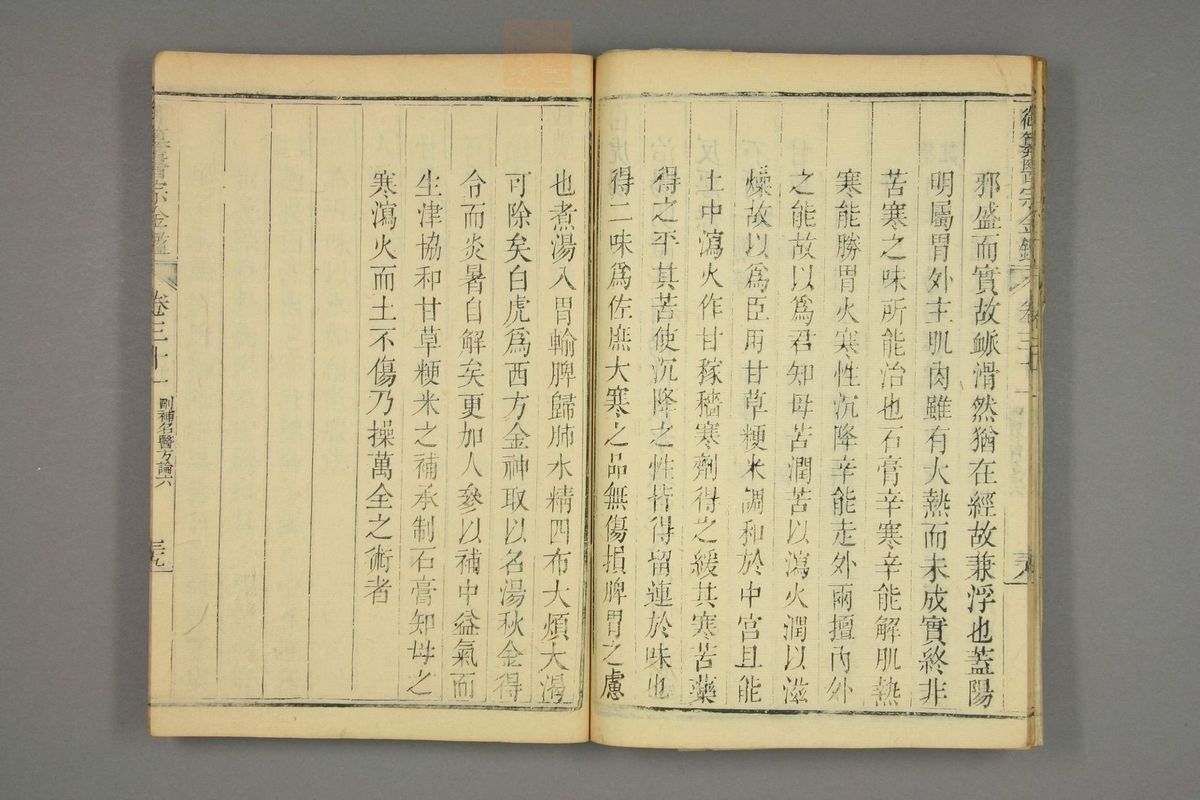 御纂醫宗金鑑 卷三十一
邪盛而實故脈滑然猶在經故兼浮也蓋陽
明屬胃外主肌肉雖有大熱而未成實終非
苦寒之味所能治也石膏辛寒辛能解肌熱
寒能勝胃火寒性沉降辛能走外兩擅內外
之能故以爲君知母苦潤苦以瀉火潤以滋
燥故以爲臣用甘草粳米調和於中宮且能
土中瀉火作甘稼穡寒劑得之緩其寒苦藥
得之平其苦使沉降之性皆得留連於味也
得二味爲佐庶大寒之品無傷損脾胃之慮
也煮湯入胃輸脾歸肺水精四布大煩大渴
可除矣白虎爲西方金神取以名湯秋金得
令而炎暑自解矣更加人參以補中益氣而
生津協和甘草粳米之補承制石膏知母之
寒瀉火而土不傷乃操萬全之術者
醫宗金鑑 卷三十一 刪補名醫方論六